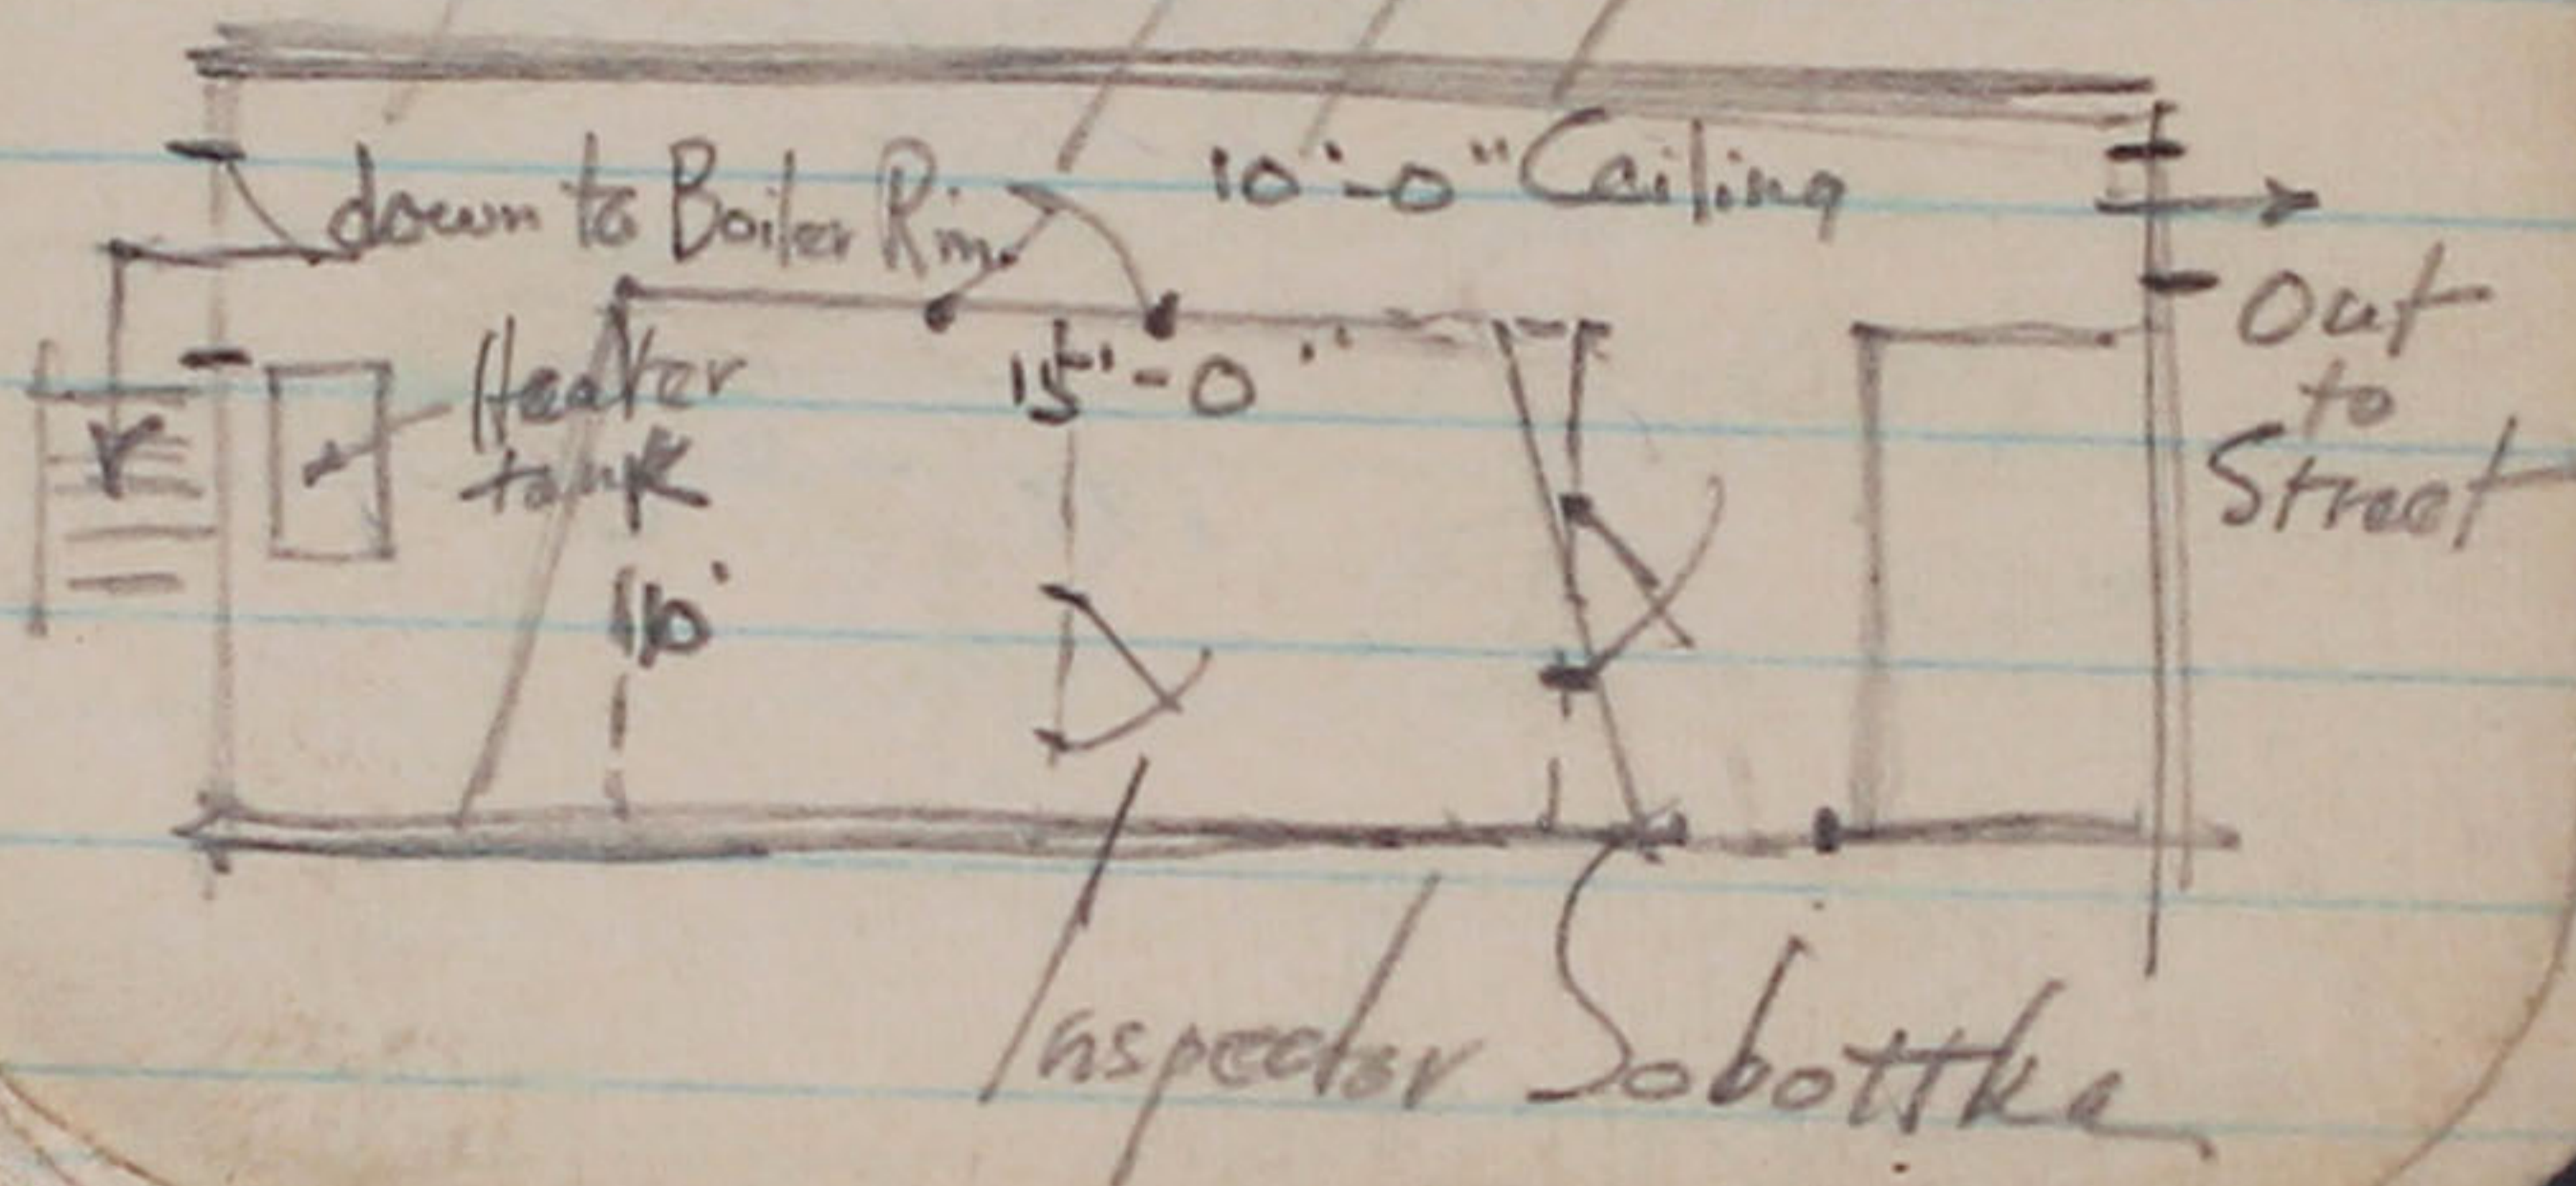 down to Boiler Rm.
10'-0" Ceiling
Out
to
Street
15'-0"
Heater
tank
10'
Inspector Sobottka